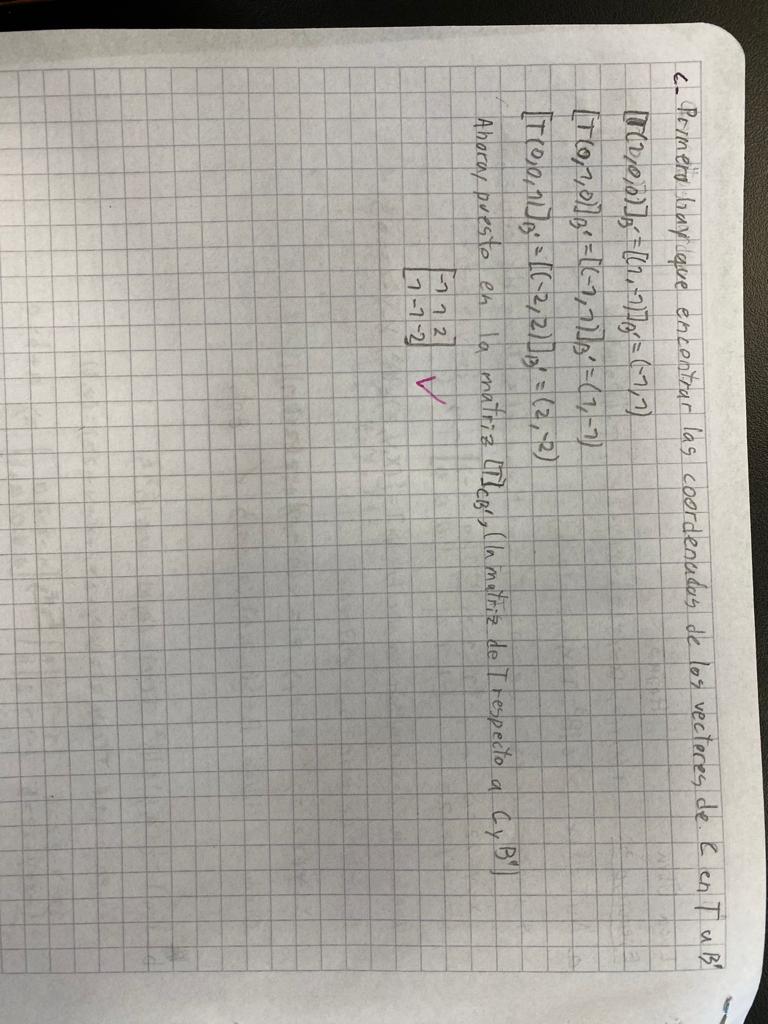 c- Primero hay que encontrar las coordenadas de los vectores de C en T a B'
[T(1,0,0)]B' = [(1,-1)]B' = (-1,1)
[T(0,1,0)]B' = [(-1,1)]B' = (1,-1)
[T(0,0,1)]B' = [(-2,2)]B' = (2,-2)
Ahora, puesto en la matriz [T]CB', (la matriz de T respecto a C y B')
[-1 1 2
1 -1 -2] ✓